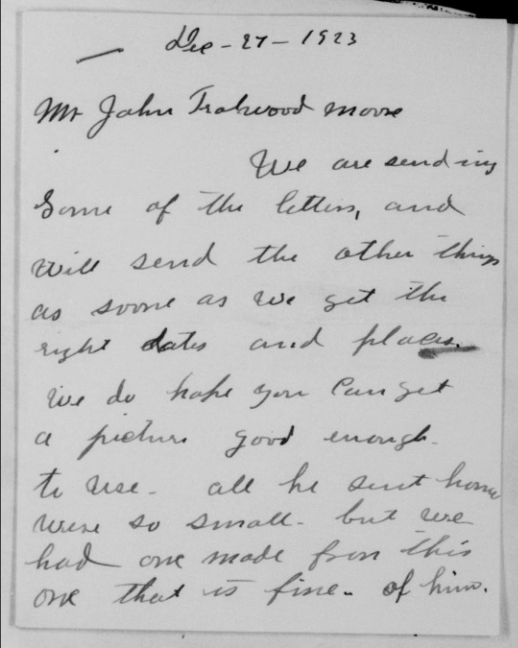 Dec - 27 - 1923
Mr John Trotwood Moore
We are sending
Some of the letters, and
will send the other things
as soone as we get the
right dates and places.
We do hope you Can get
a picture good enough -
to use - all he sent home
were so small - but we
had one made from this
one that is fine - of him.